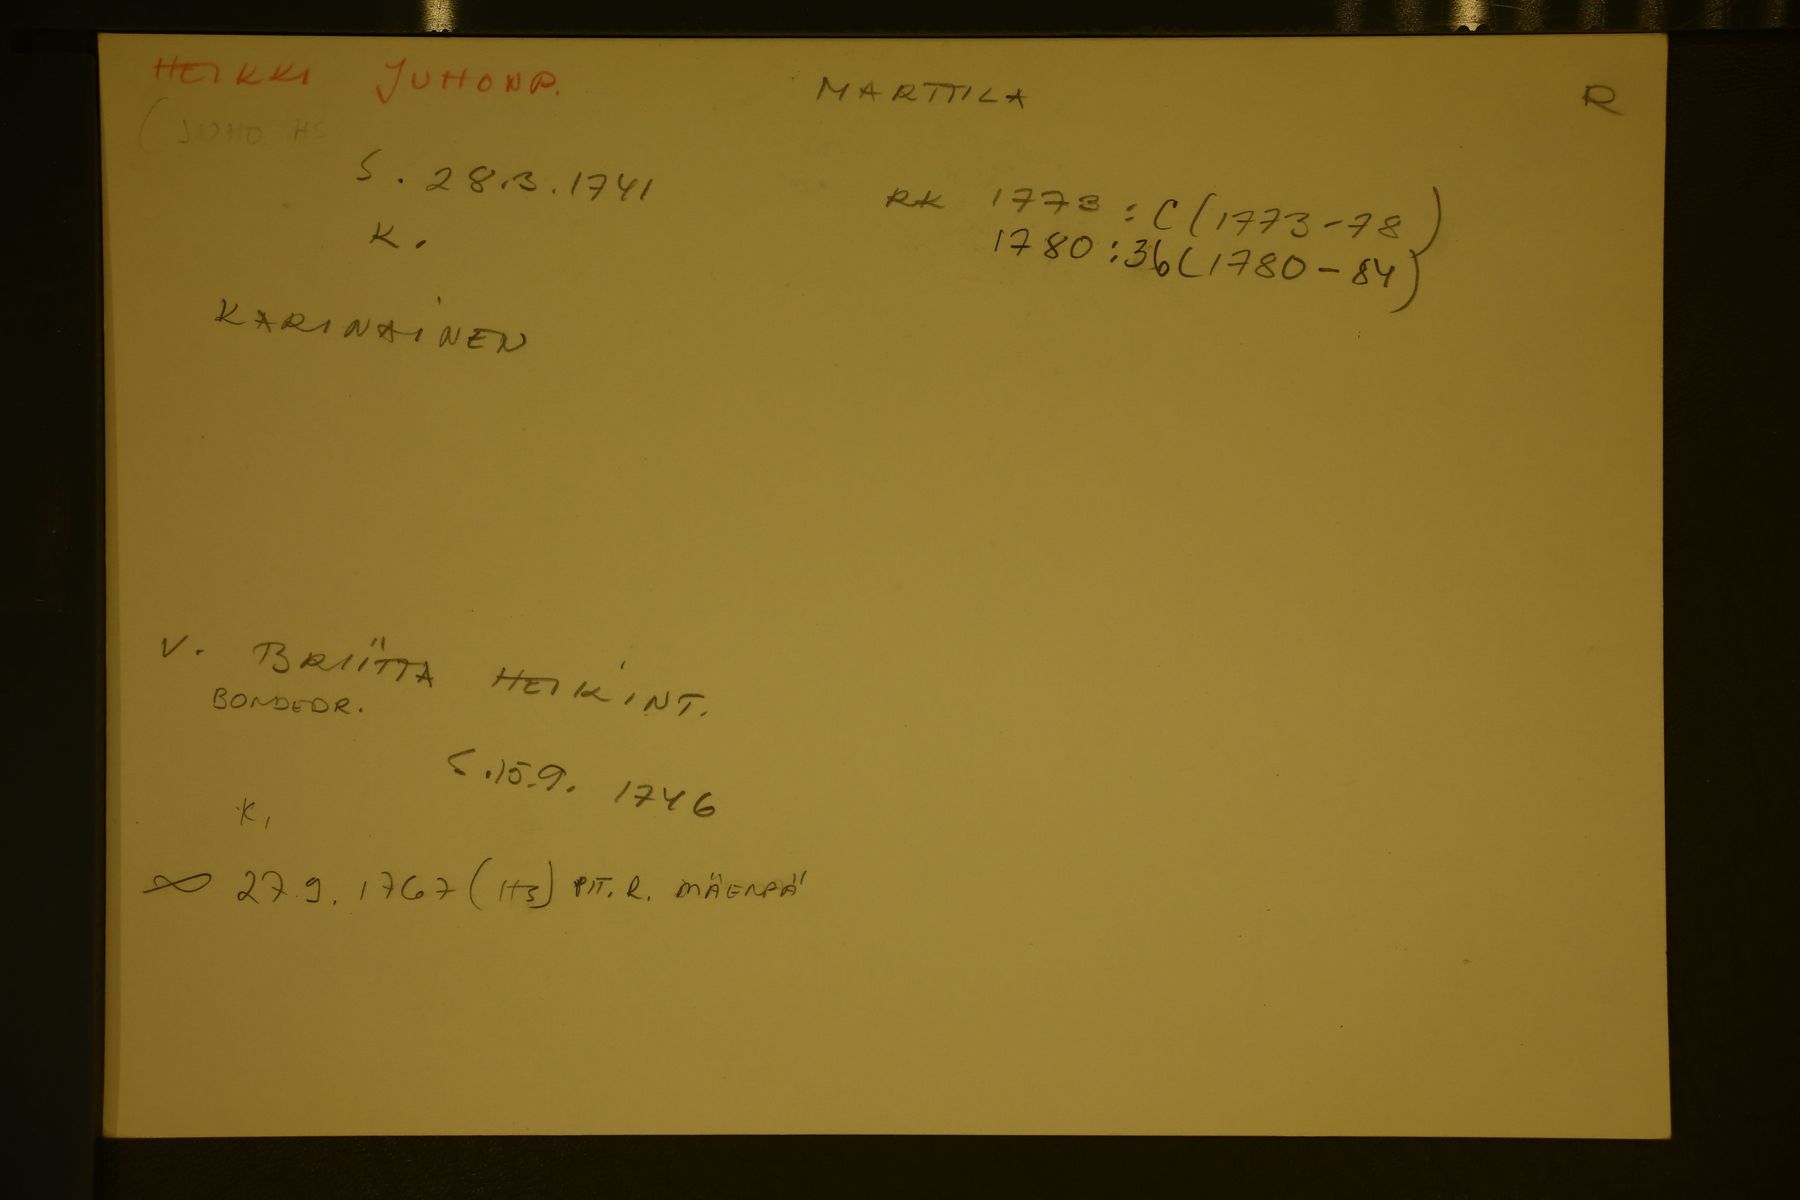 HEIKKI JUHONP. MARTTILA R
(JUHO HS
S. 28.3.1741
RK 1773 : C (1773-78)
K. 1780 : 36 (1780-84)
KARINAINEN
V. BRIITTA HEIKINT.
BONDEDR.
S. 15.9. 1746
K.
∞ 27.9. 1767 (HS) PIT. R. MÄENPÄ